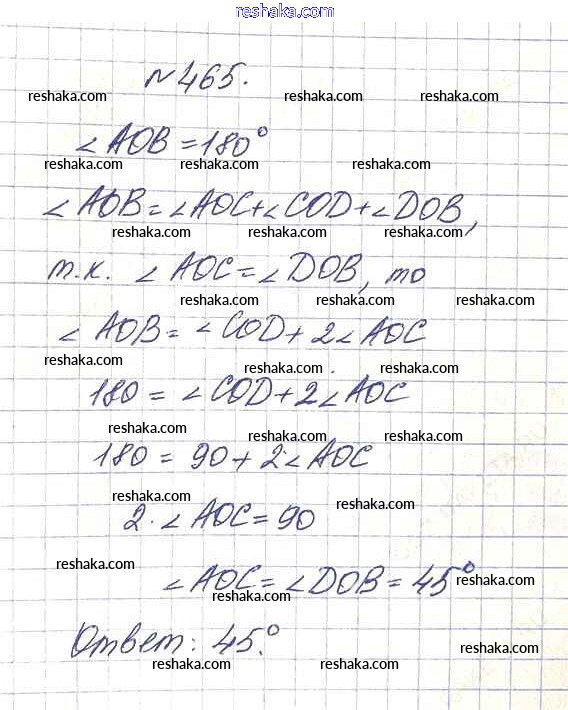 reshaka.com
№465.
reshaka.com reshaka.com reshaka.com
∠AOB=180°
reshaka.com reshaka.com reshaka.com
∠AOB=∠AOC+∠COD+∠DOB,
reshaka.com reshaka.com reshaka.com
т.к. ∠AOC=∠DOB, то
reshaka.com reshaka.com reshaka.com
∠AOB=∠COD+2∠AOC
reshaka.com reshaka.com reshaka.com
180=∠COD+2∠AOC
reshaka.com reshaka.com reshaka.com
180=90+2·∠AOC
reshaka.com reshaka.com
2·∠AOC=90
reshaka.com reshaka.com
∠AOC=∠DOB=45°
reshaka.com reshaka.com
Ответ: 45°.
reshaka.com reshaka.com reshaka.com